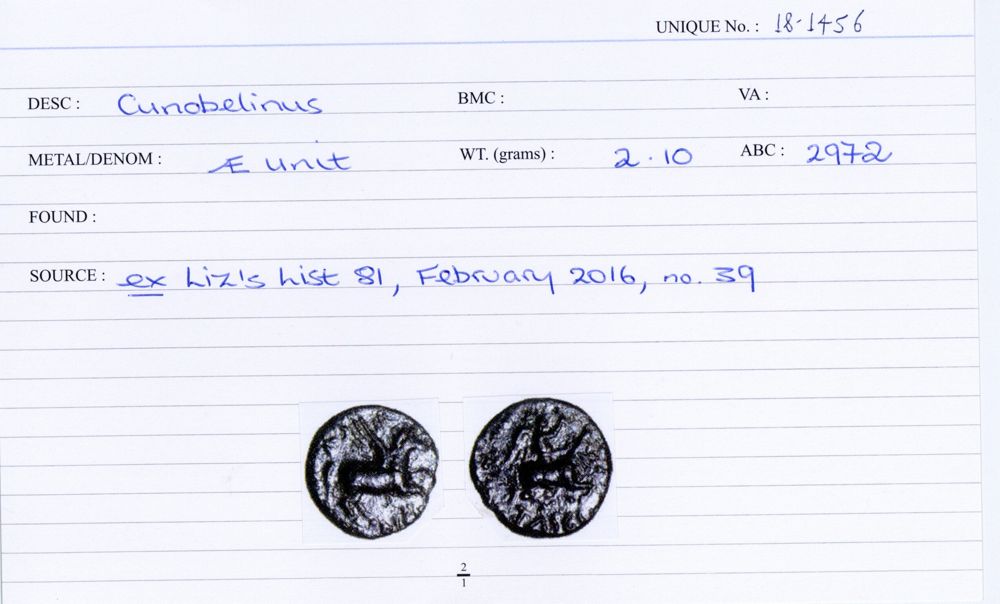 UNIQUE No. : 18-1456
DESC : Cunobelinus BMC : VA :
METAL/DENOM : Æ unit WT. (grams) : 2.10 ABC : 2972
FOUND :
SOURCE : ex Liz's List 81, February 2016, no. 39
2
1